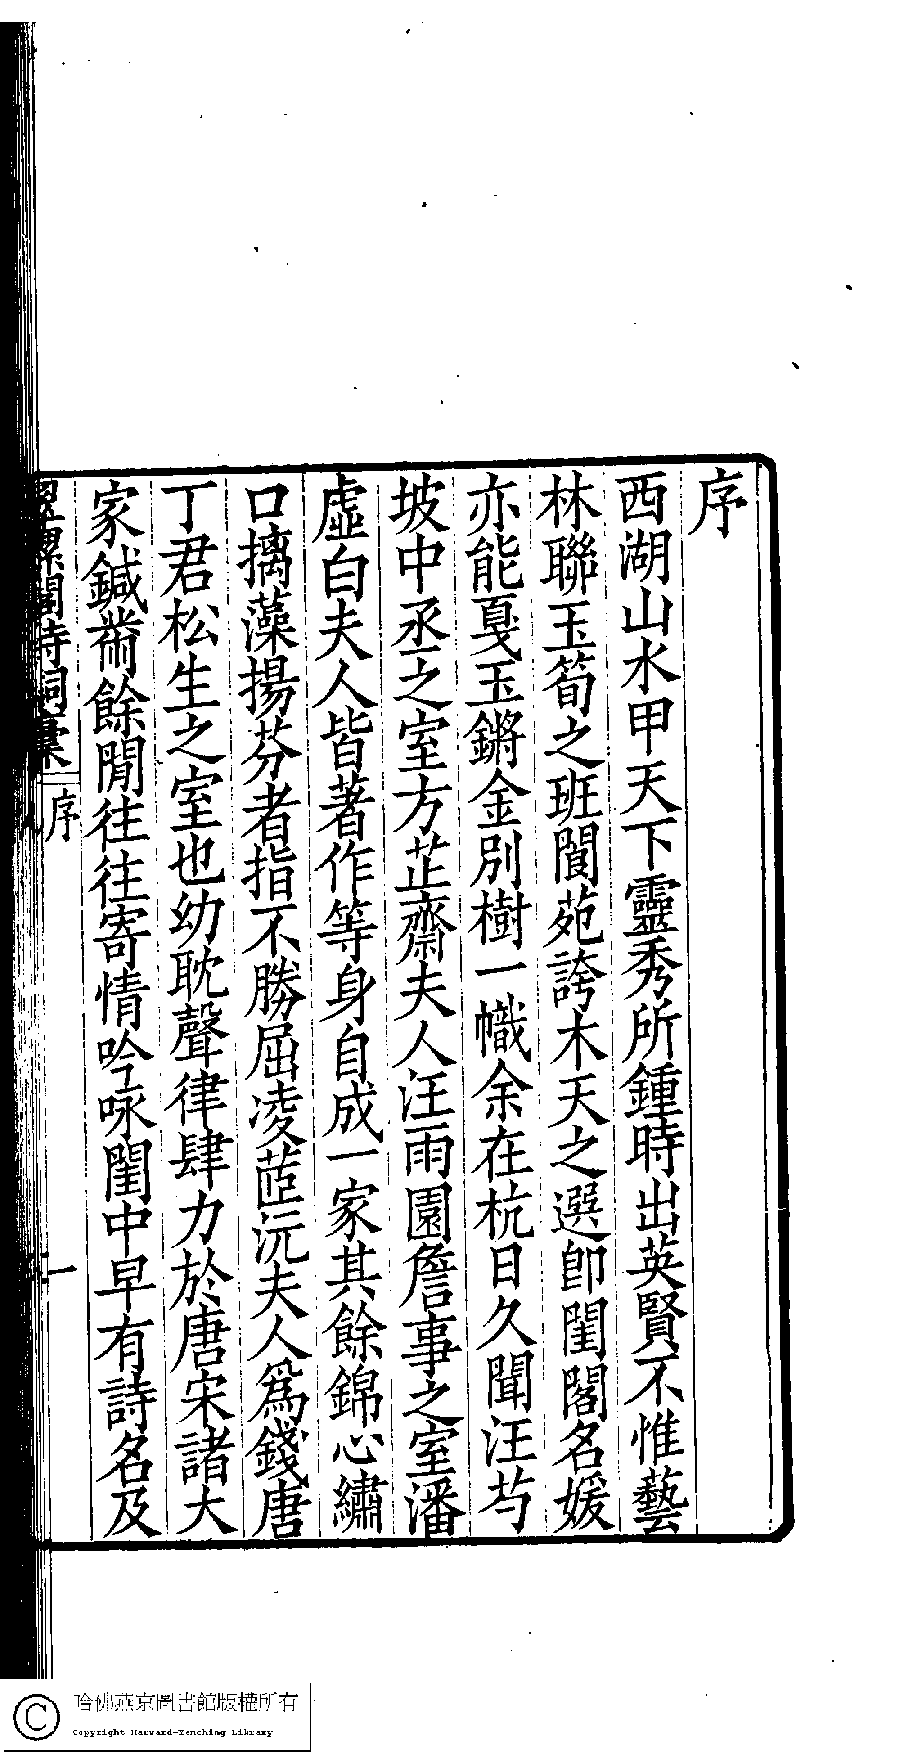 序
西湖山水甲天下靈秀所鍾時出英賢不惟藝
林聯玉筍之班閬苑誇木天之選卽閨閣名媛
亦能戛玉鏘金別樹一幟余在杭日久聞汪芍
坡中丞之室方芷齋夫人汪雨園詹事之室潘
虛白夫人皆著作等身自成一家其餘錦心繡
口摛藻揚芬者指不勝屈凌茝沅夫人爲錢唐
丁君松生之室也幼耽聲律肆力於唐宋諸大
家鍼黹餘閒往往寄情吟咏閨中早有詩名及
翠螺閣詩詞稾 序 一
哈佛燕京圖書館版權所有
Copyright Harvard-Yenching Library